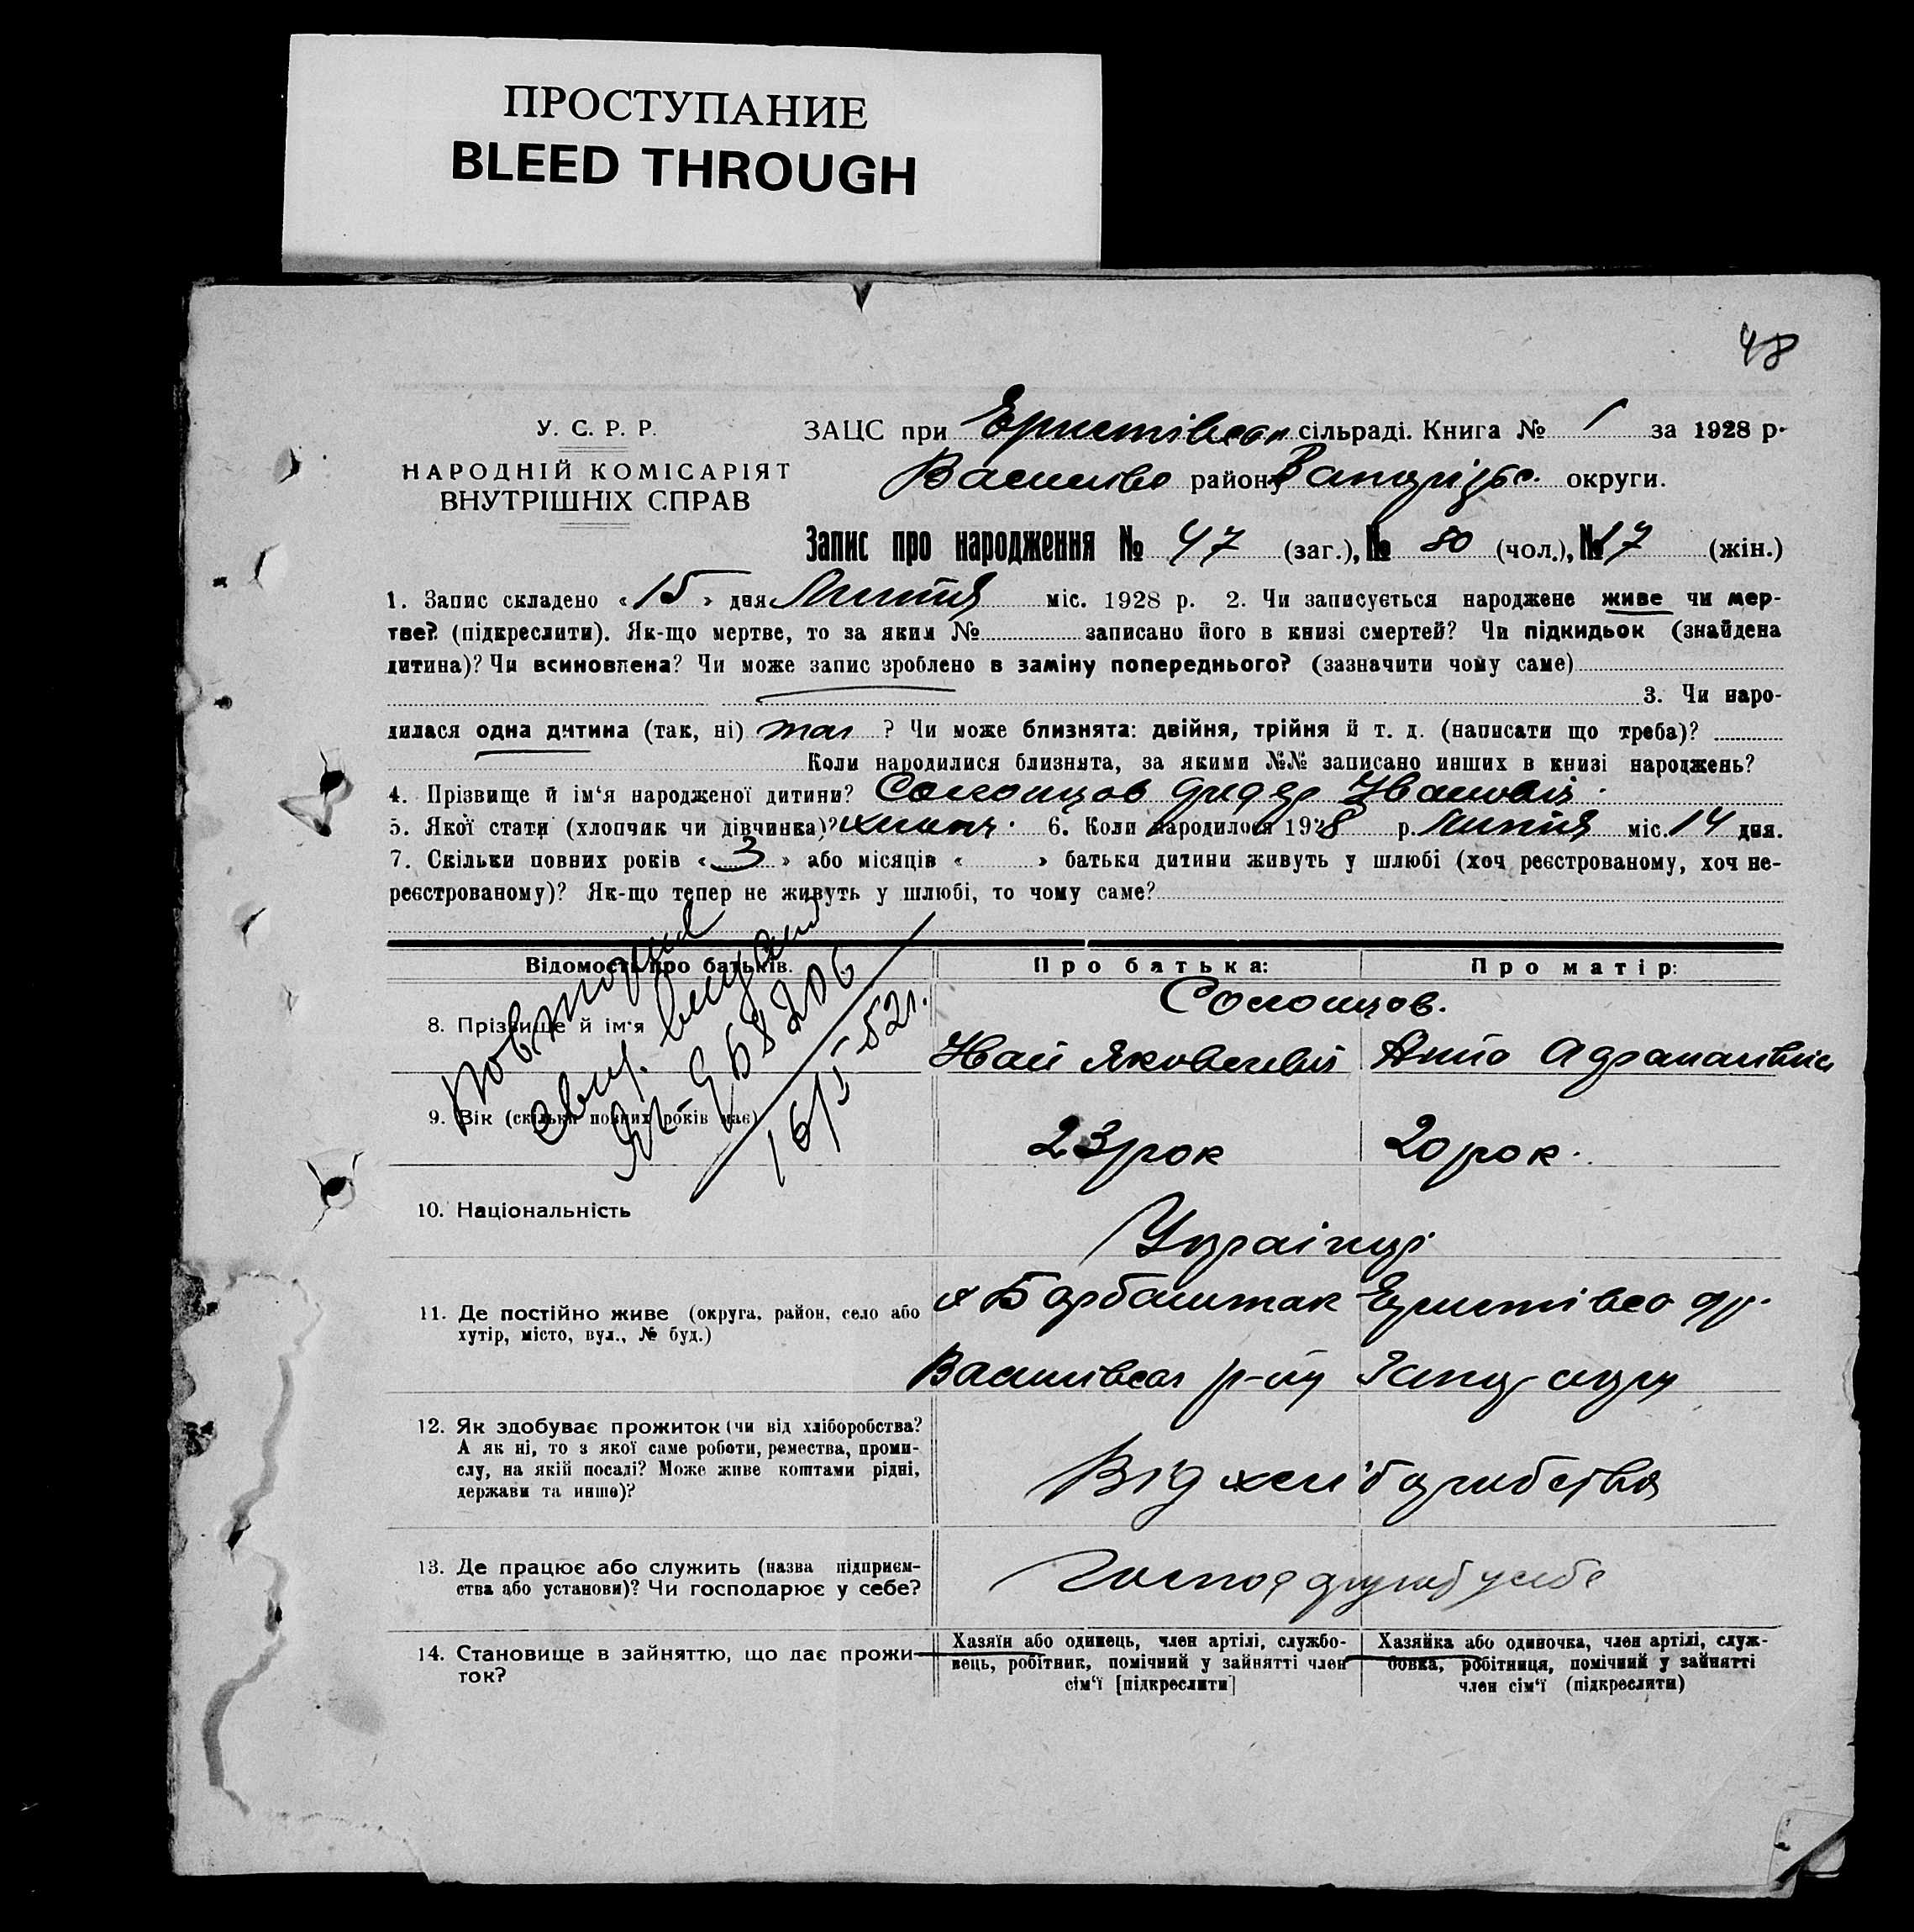 ПРОСТУПАНИЕ
BLEED THROUGH
48
У. С. Р. Р.
НАРОДНІЙ КОМІСАРІЯТ
ВНУТРІШНІХ СПРАВ
ЗАЦС при сільраді. Книга № 1 за 1928 р.
району округи.
Запис про народження № 47 (заг.), № 80 (чол.), № 17 (жін.)
1. Запис складено «15» дня Липня міс. 1928 р. 2. Чи записується народжене живе чи мер-
тве? (підкреслити). Як-що мертве, то за яким № записано його в книзі смертей? Чи підкидьок (знайдена
дитина)? Чи всиновлена? Чи може запис зроблено в заміну попереднього? (зазначити чому саме)
3. Чи наро-
дилася одна дитина (так, ні) так ? Чи може близнята: двійня, трійня й т. д. (написати що треба)?
Коли народилися близнята, за якими №№ записано инших в книзі народжень?
4. Прізвище й ім'я народженої дитини? Солонцов
5. Якої стати (хлопчик чи дівчинка)? хлопч. 6. Коли народилося 1928 р. Липня міс. 14 дня.
7. Скільки повних років «3» або місяців « » батьки дитини живуть у шлюбі (хоч реєстрованому, хоч не-
реєстрованому)? Як-що тепер не живуть у шлюбі, то чому саме?
Відомость про батьків.
Про батька:
Про матір:
8. Прізвище й ім'я
Солонцов.
Іван Яковлевич
9. Вік (скільки повних років має)
23 рок
20 рок.
10. Національність
Українці
11. Де постійно живе (округа, район, село або
хутір, місто, вул., № буд.)
12. Як здобуває прожиток (чи від хліборобства?
А як ні, то з якої саме роботи, ремества, проми-
слу, на якій посаді? Може живе коштами рідні,
держави та инше)?
Від хліборобства
13. Де працює або служить (назва підприєм-
ства або установи)? Чи господарює у себе?
14. Становище в зайняттю, що дає прожи-
ток?
Хазяїн або одинець, член артілі, службо-
вець, робітник, помічний у зайнятті член
сім'ї [підкреслити]
Хазяйка або одиночка, член артілі, служ-
бовка, робітниця, помічний у зайнятті
член сім'ї (підкреслити)
повторное
свид. выдано